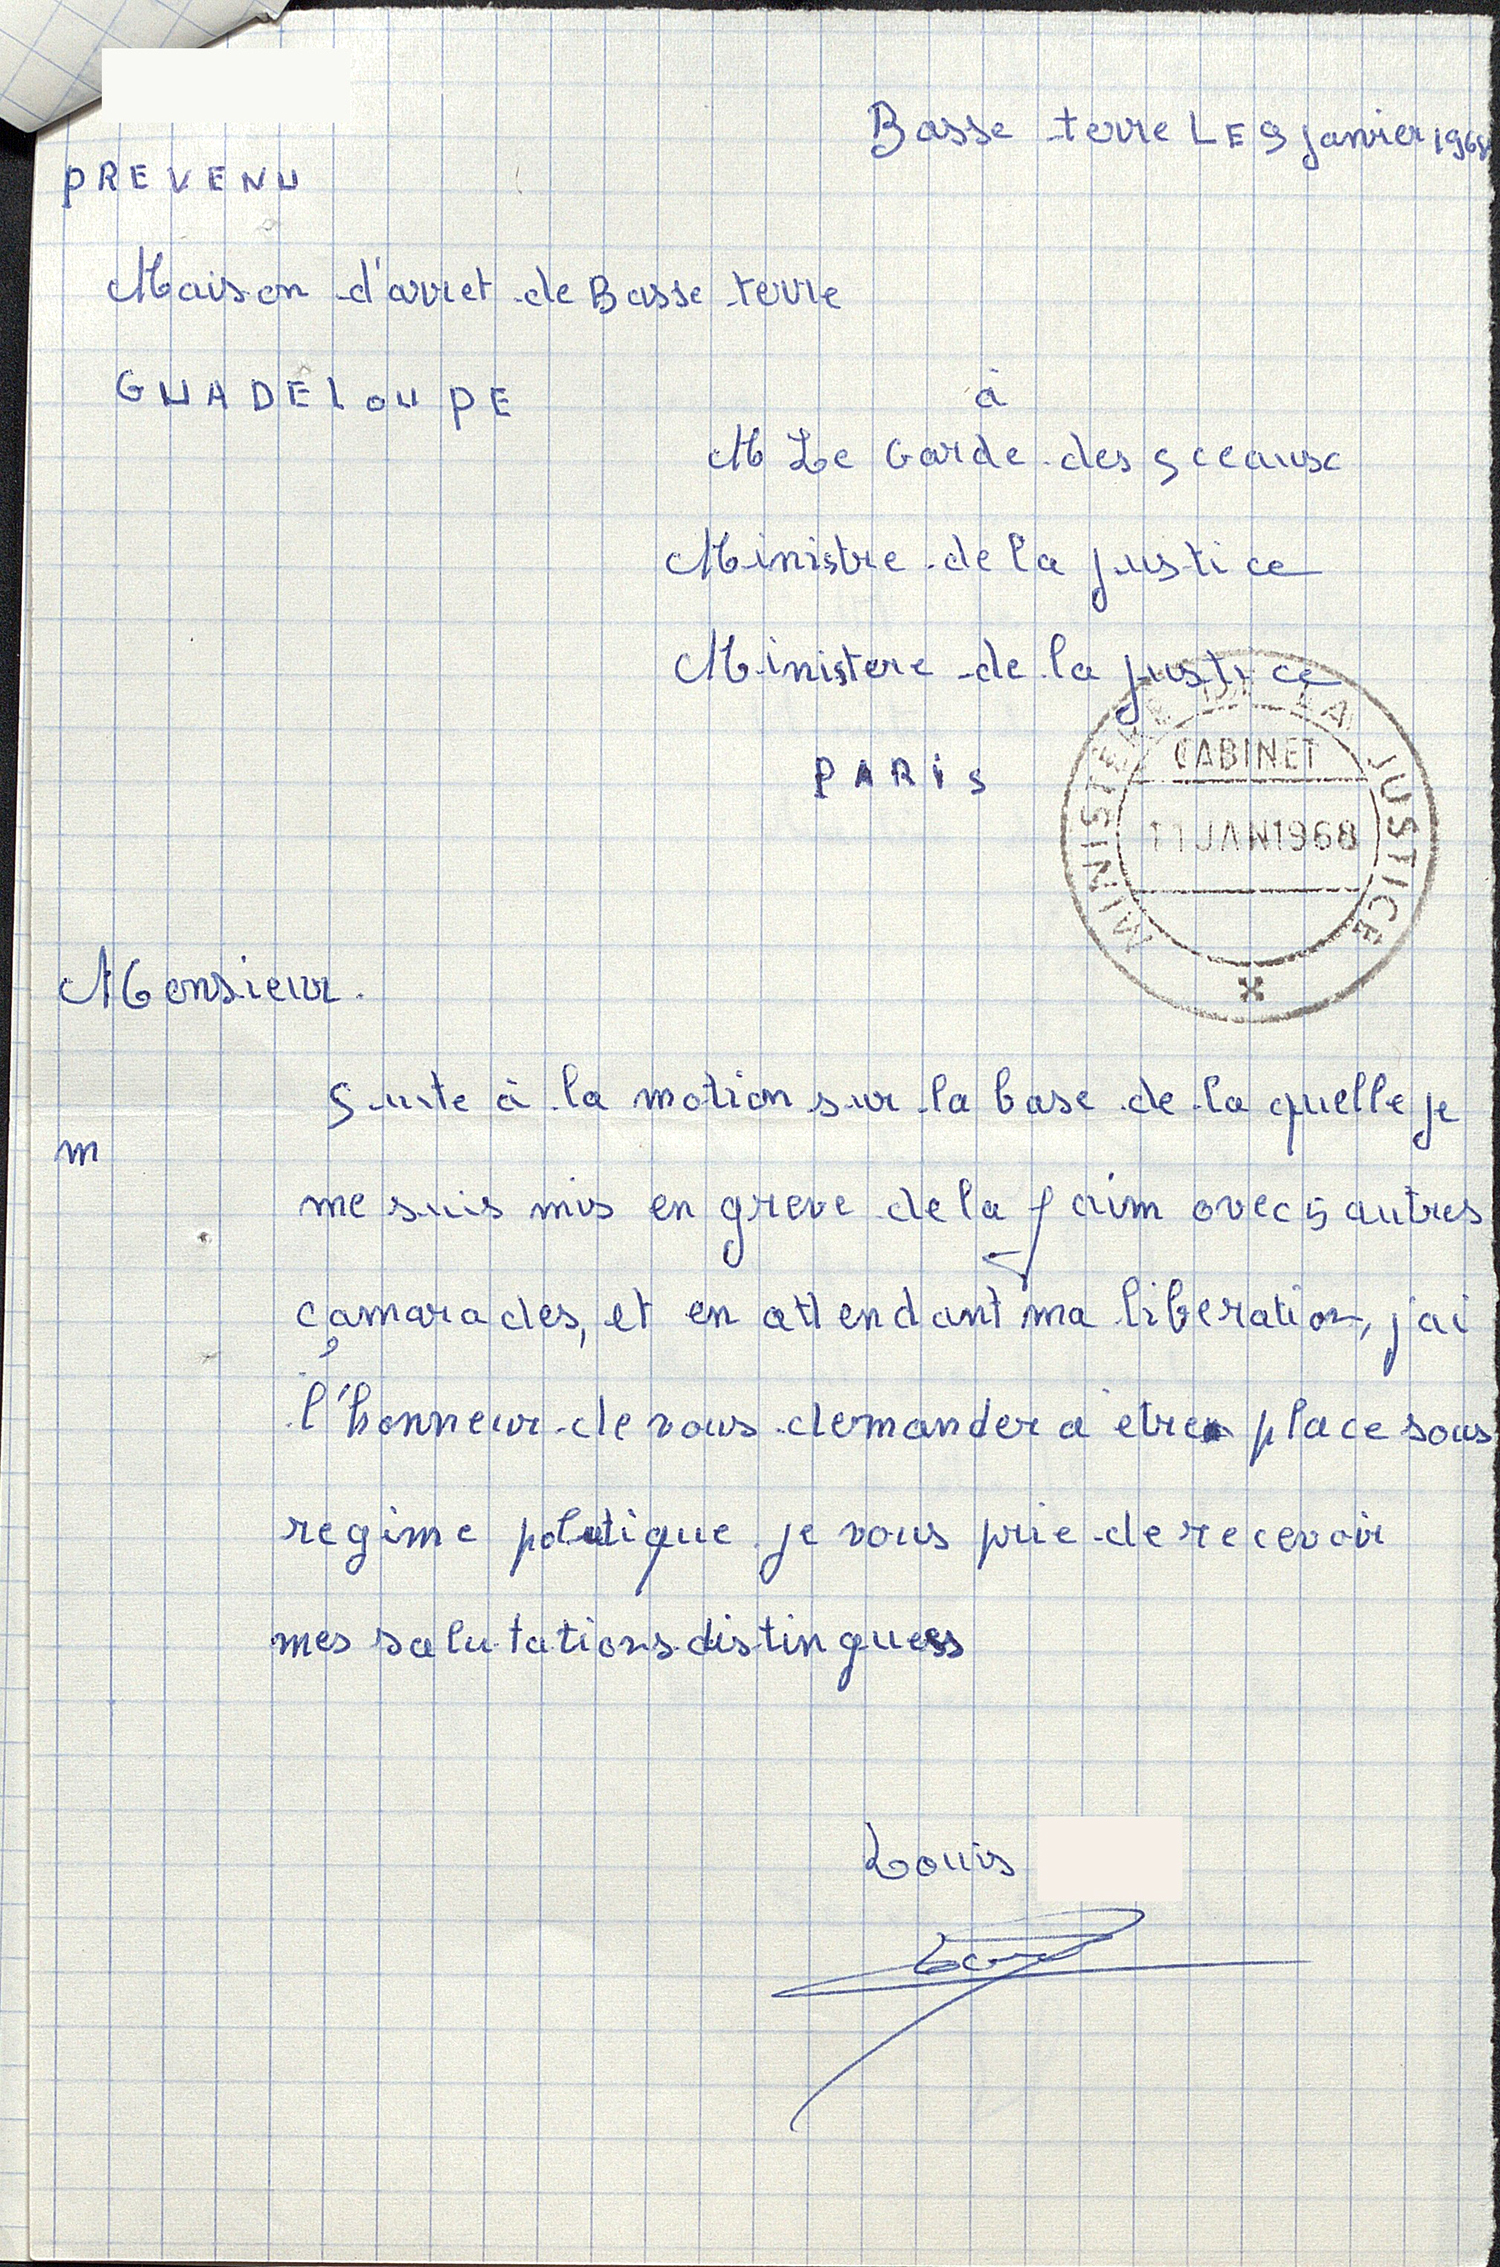 Basse terre LE 9 janvier 1968
PREVENU
Maison d'arret de Basse terre
GUADELOUPE
à
M Le Garde des sceaux
Ministre de la justice
Ministere de la justice
PARIS
MINISTERE DE LA JUSTICE
CABINET
11 JAN 1968
Monsieur.
Suite à la motion sur la base de la quelle je
m
me suis mis en greve de la faim avec 5 autres
camarades, et en attendant ma liberation, j'ai
l'honneur de vous demander a etre place sous
regime politique je vous prie de recevoir
mes salutations distinguees
Louis